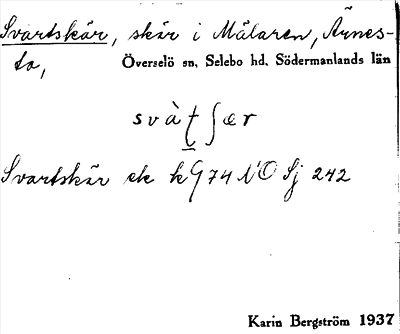 Svartskär, skär i Mälaren, Ärnes-
ta,
Överselö sn, Selebo hd, Södermanlands län
svàt ʃær
Svartskär ek kG 74 NO Sj 242
Karin Bergström 1937